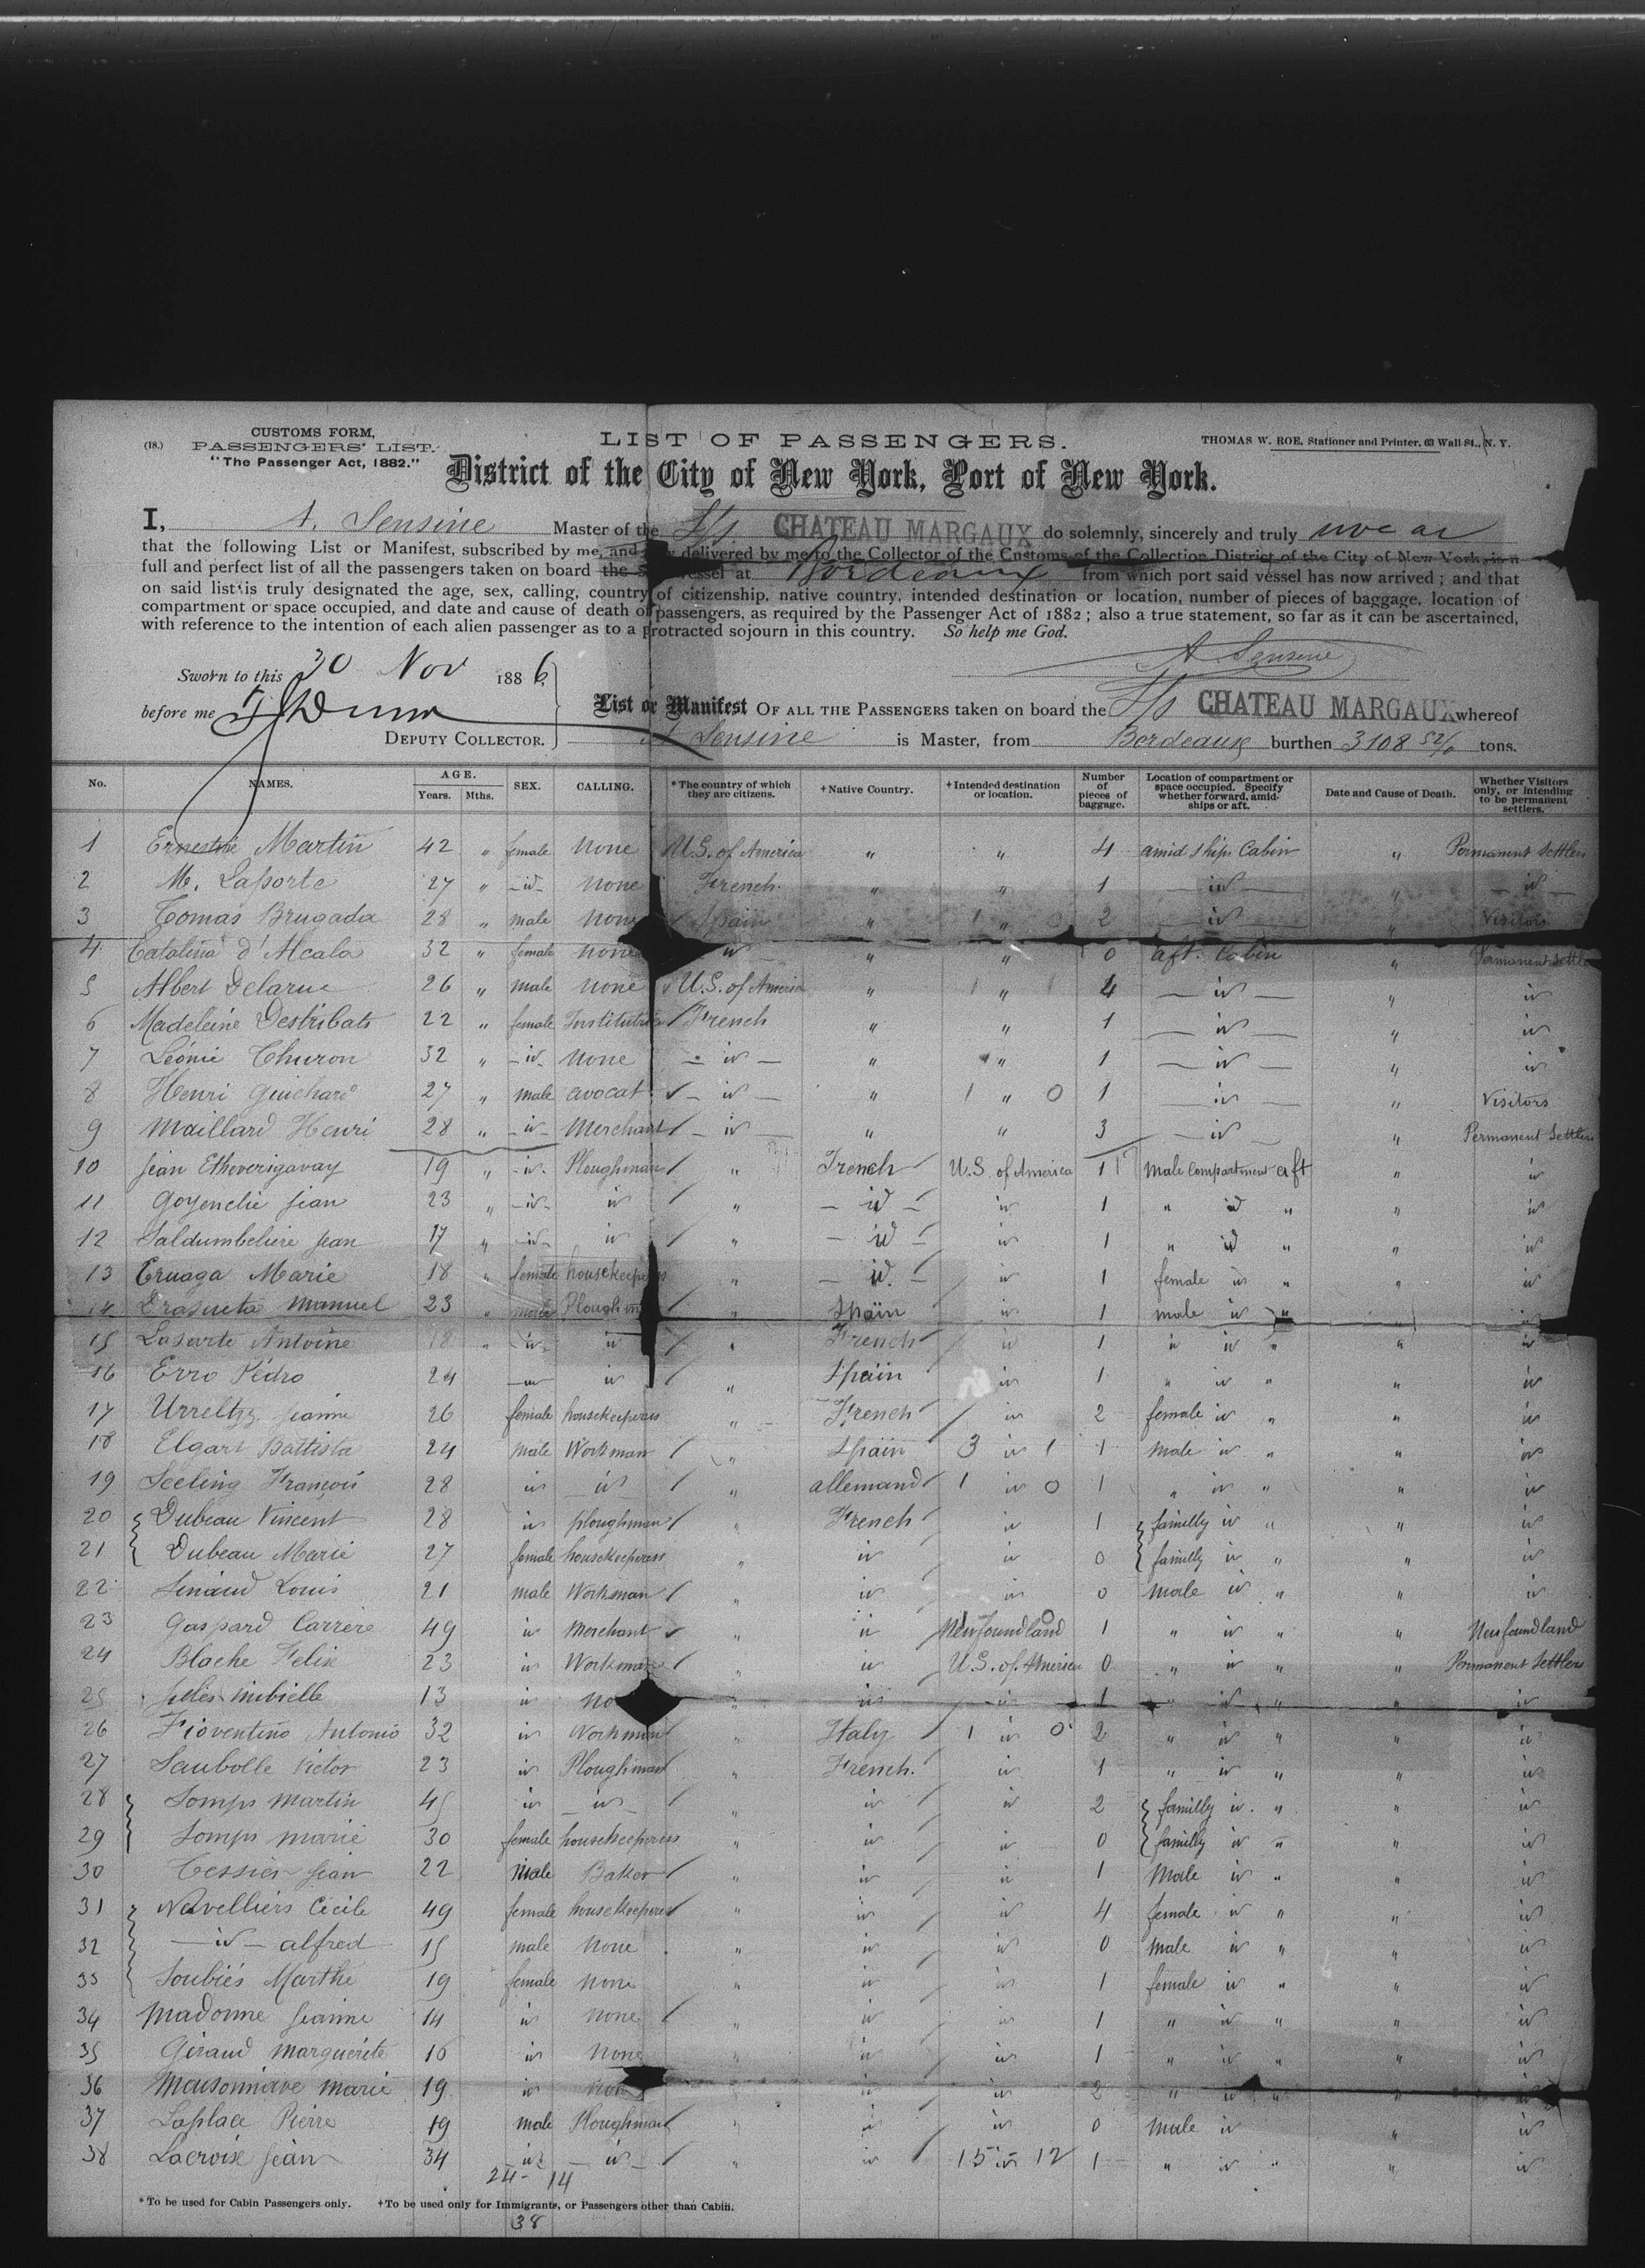 (18.)
CUSTOMS FORM,
PASSENGERS' LIST.
"The Passenger Act, 1882."
LIST OF PASSENGERS.
THOMAS W. ROE, Stationer and Printer, 63 Wall St., N. Y.
District of the City of New York, Port of New York.
I, A. Sensine Master of the S/s. CHATEAU MARGAUX do solemnly, sincerely and truly
that the following List or Manifest, subscribed by me, and delivered by me to the Collector of the Customs of the Collection District of the City of New York, is a
full and perfect list of all the passengers taken on board the vessel at Bordeaux from which port said vessel has now arrived; and that
on said list is truly designated the age, sex, calling, country of citizenship, native country, intended destination or location, number of pieces of baggage, location of
compartment or space occupied, and date and cause of death of passengers, as required by the Passenger Act of 1882; also a true statement, so far as it can be ascertained,
with reference to the intention of each alien passenger as to a protracted sojourn in this country. So help me God.
A Sensine
Sworn to this 30 Nov 1886,
before me
DEPUTY COLLECTOR.
List or Manifest OF ALL THE PASSENGERS taken on board the S/s CHATEAU MARGAUX whereof
A Sensine is Master, from Bordeaux burthen 3108 52/ tons.
No. NAMES. AGE. Years. Mths. SEX. CALLING. *The country of which they are citizens. †Native Country. †Intended destination or location. Number of pieces of baggage. Location of compartment or space occupied. Specify whether forward, amidships or aft. Date and Cause of Death. Whether Visitors only, or intending to be permanent settlers.
1 Ernestine Martin 42 " female none U.S. of America " " 4 amid ships Cabin " Permanent Settlers
2 M. Laporte 27 " id none French " " 1 id " id
3 Tomas Brugada 28 " male none Spain " 1 " 0 2 id " Visitors
4 Catalina d'Alcala 32 " female none id " " 0 aft. Cabin " Permanent Settle
5 Albert Delarue 26 " male none U.S. of America " 1 " 1 4 id " id
6 Madeleine Destribats 22 " female Institutrice French " " 1 id " id
7 Léonie Churon 32 " id none id " " 1 id " id
8 Henri Guichard 27 " male avocat id " 1 " 0 1 id " Visitors
9 Maillard Henri 28 " id Merchant id " " 3 id " Permanent Settlers
10 Jean Etheverigaray 19 " id Ploughman " French U.S. of America 1 male Compartment aft " id
11 Goyenche Jean 23 " id id " id id 1 " id " " id
12 Saldumbehere Jean 17 " id id " id id 1 " id " " id
13 Eruaga Marie 18 " female housekeeperess " id id 1 female id " " id
14 Manuel 23 " male Ploughman " Spain id 1 male id " " id
15 Lasarte Antoine 18 " id id " French id 1 id id " " id
16 Erro Pédro 24 id id " Spain id 1 " id " " id
17 Jeanne 26 female housekeeperess " French id 2 female id " " id
18 Elgart Battista 24 male Workman " Spain 3 id 1 1 male id " " id
19 Seeling François 28 id id " allemand 1 id 0 1 " id " " id
20 Dubeau Vincent 28 id ploughman " French id 1 familly id " " id
21 Dubeau Marie 27 female housekeeperess " id id 0 familly id " " id
22 Louis 21 male Workman " id id 0 male id " " id
23 Gaspard Carrère 49 id Merchant " id Newfoundland 1 " id " " Newfoundland
24 Blache Felix 23 id Workman " id U.S. of America 0 " id " " Permanent Settlers
25 13 id no " id id 1 " id " " id
26 Fioventino Antonio 32 id Workman " Italy 1 id 0 2 " id " " id
27 Saubolle Victor 23 id Ploughman " French. id 1 " id " " id
28 Somps Martin 45 id id " id id 2 familly id " " id
29 Somps Marie 30 female housekeeperess " id id 0 familly id " " id
30 Tessier Jean 22 male Baker " id id 1 Male id " " id
31 Navelliers Cécile 49 female housekeeperess " id id 4 female id " " id
32 id alfred 15 male none " id id 0 male id " " id
33 Soubiés Marthe 19 female none " id id 1 female id " " id
34 Madonne Jeanne 14 id none " id id 1 " id " " id
35 Giraud Marguerite 16 id none " id id 1 " id " " id
36 Maisonnave Marie 19 id none " id id 2 " id " " id
37 Laplace Pierre 19 male Ploughman " id id 0 male id " id
38 Lacroix Jean 34 id id " id 15 id 12 1 " id " " id
24 - 14
*To be used for Cabin Passengers only. †To be used only for Immigrants, or Passengers other than Cabin.
38